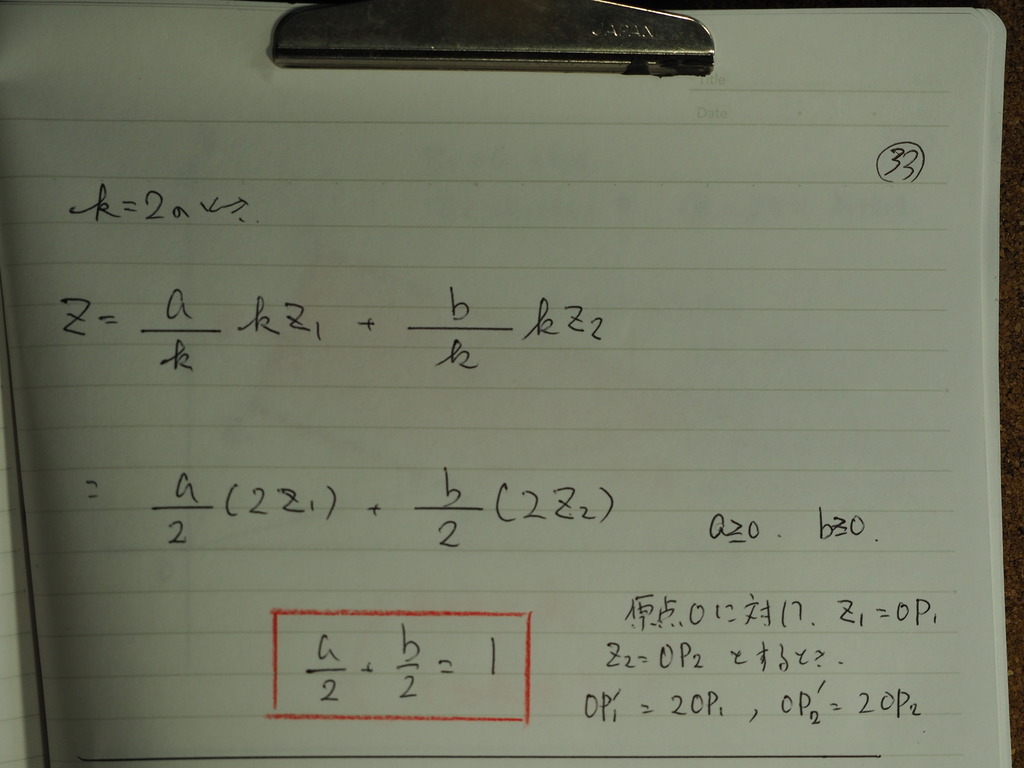 JAPAN
Title
Date
33
k=2のとき.
Z= a/k kZ₁ + b/k kZ₂
= a/2 (2Z₁) + b/2 (2Z₂)
a≧0. b≧0.
a/2 + b/2 = 1
原点Oに対して、Z₁=OP₁
Z₂=OP₂ とするとき.
OP₁′ = 2OP₁ , OP₂′ = 2OP₂